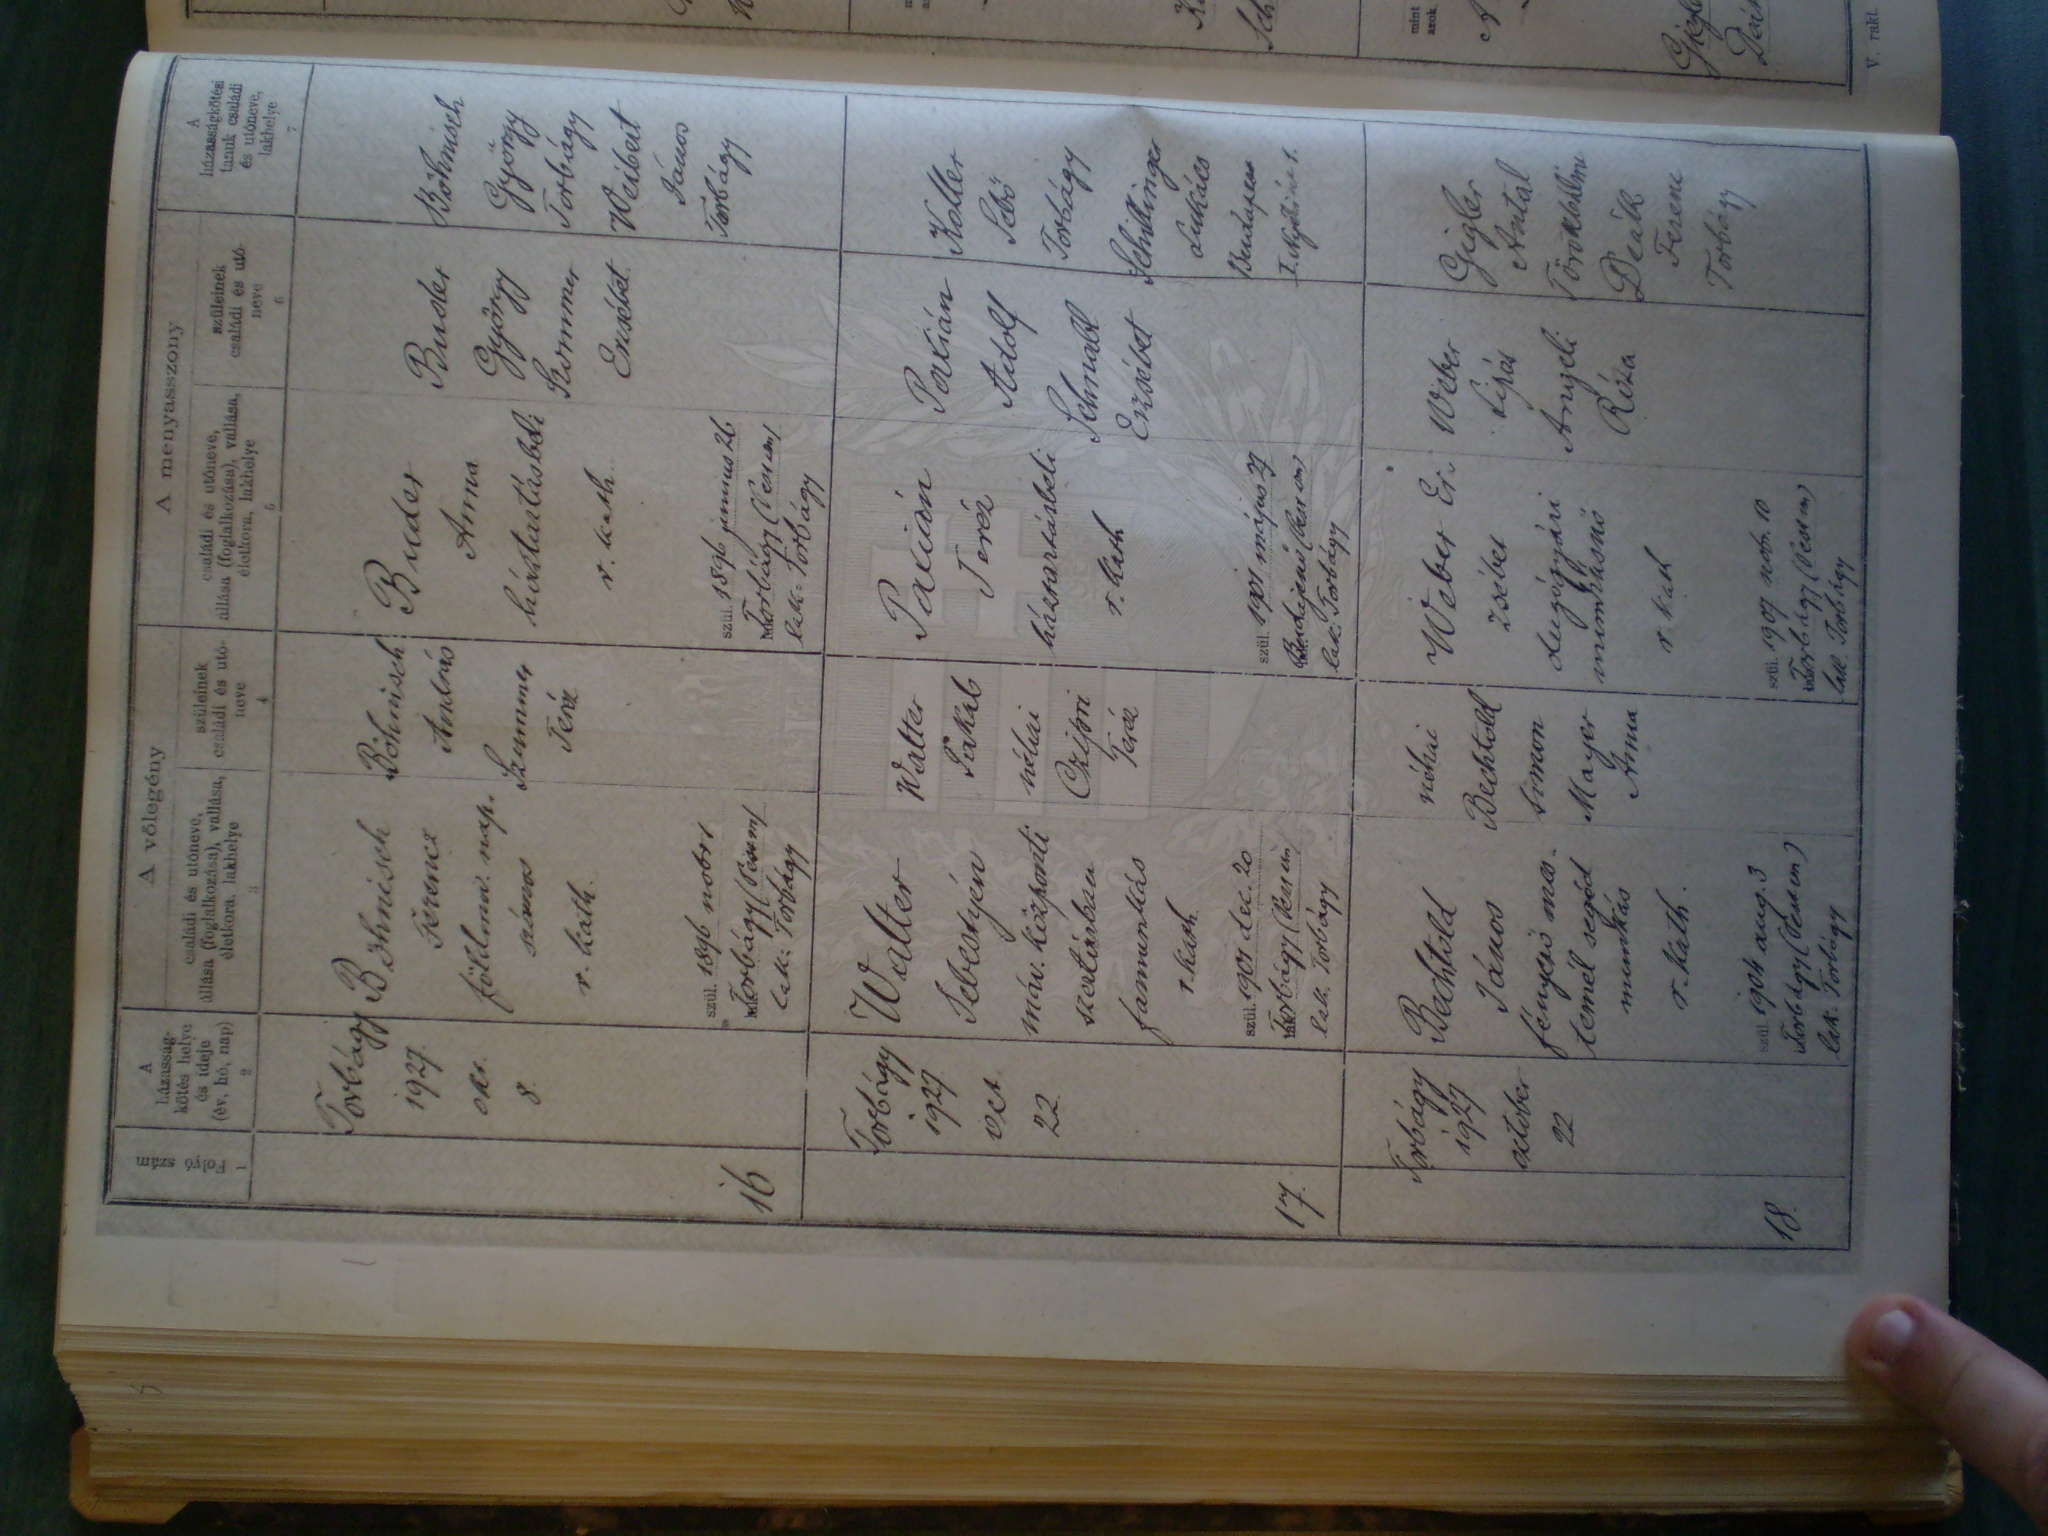 Folyó szám
1
A
házasság-
kötés helye
és ideje
(év, hó, nap)
2
A vőlegény
családi és utóneve,
állása (foglalkozása), vallása,
életkora, lakhelye
3
szüleinek
családi és utó-
neve
4
A menyasszony
családi és utóneve,
állása (foglalkozása), vallása,
életkora, lakhelye
5
szüleinek
családi és utó-
neve
6
A
házasságkötési
tanuk családi
és utóneve,
lakhelye
7
16
Torbágy
1927
okt.
8.
Böhnisch
Ferencz
földmiv. nap.
számos
r. kath.
szül. 1896 nobr 1
Torbágy (Pestm)
lak: Torbágy
Böhnisch
András
Szummer
Teréz
Buder
Anna
háztartásbeli
r. kath.
szül. 1896 junius 26
Torbágy (Pestm)
lak: Torbágy
Buder
György
Szummer
Erzsébet
Böhnisch
György
Torbágy
Weibert
János
Torbágy
17.
Torbágy
1927
oct
22.
Walter
Sebestyén
máv. központi
szertárban
famunkás
r. kath
szül. 1901 dec. 20
Torbágy (Pest m)
lak. Torbágy
Walter
Jakab
néhai
Czifori
Teréz
Paxián
Teréz
háztartásbeli
r. kath
szül. 1901 május 27
Budajenő (Pest m)
lak: Torbágy
Paxián
Adolf
Schnabl
Erzsébet
Koller
Sebő
Torbágy
Schillinger
Lukács
Budapest
18.
Torbágy
1927
october
22
Bechtold
János
fényező mes-
ternél segéd
munkás
r. kath.
szül. 1904 aug. 3
Torbágy (Pest m)
lak: Torbágy
néhai
Bechtold
Simon
Mayer
Anna
Weber Er-
zsébet
dugógyári
munkásnő
r. kath
szül. 1907 nob. 10
Torbágy (Pest m)
lak. Torbágy
Weber
Lipás
Angeli
Róza
Gigler
Antal
Törökbálint
Deák
Ferenc
Torbágy
mint
azok.
V. rakt.